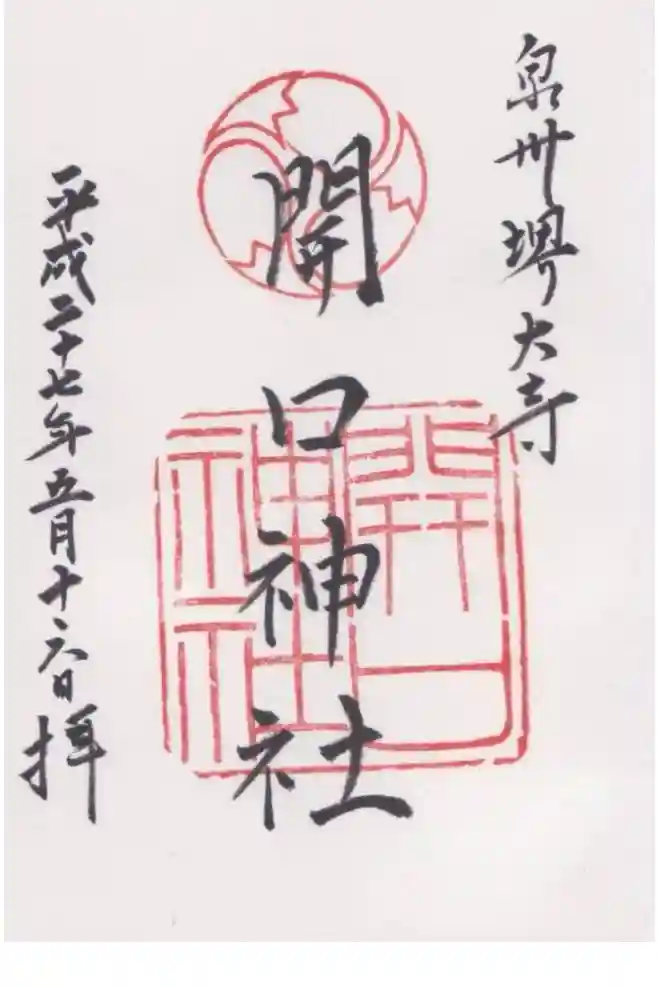 泉州堺大寺
開口神社
開口神社
平成二十七年五月十六日拝